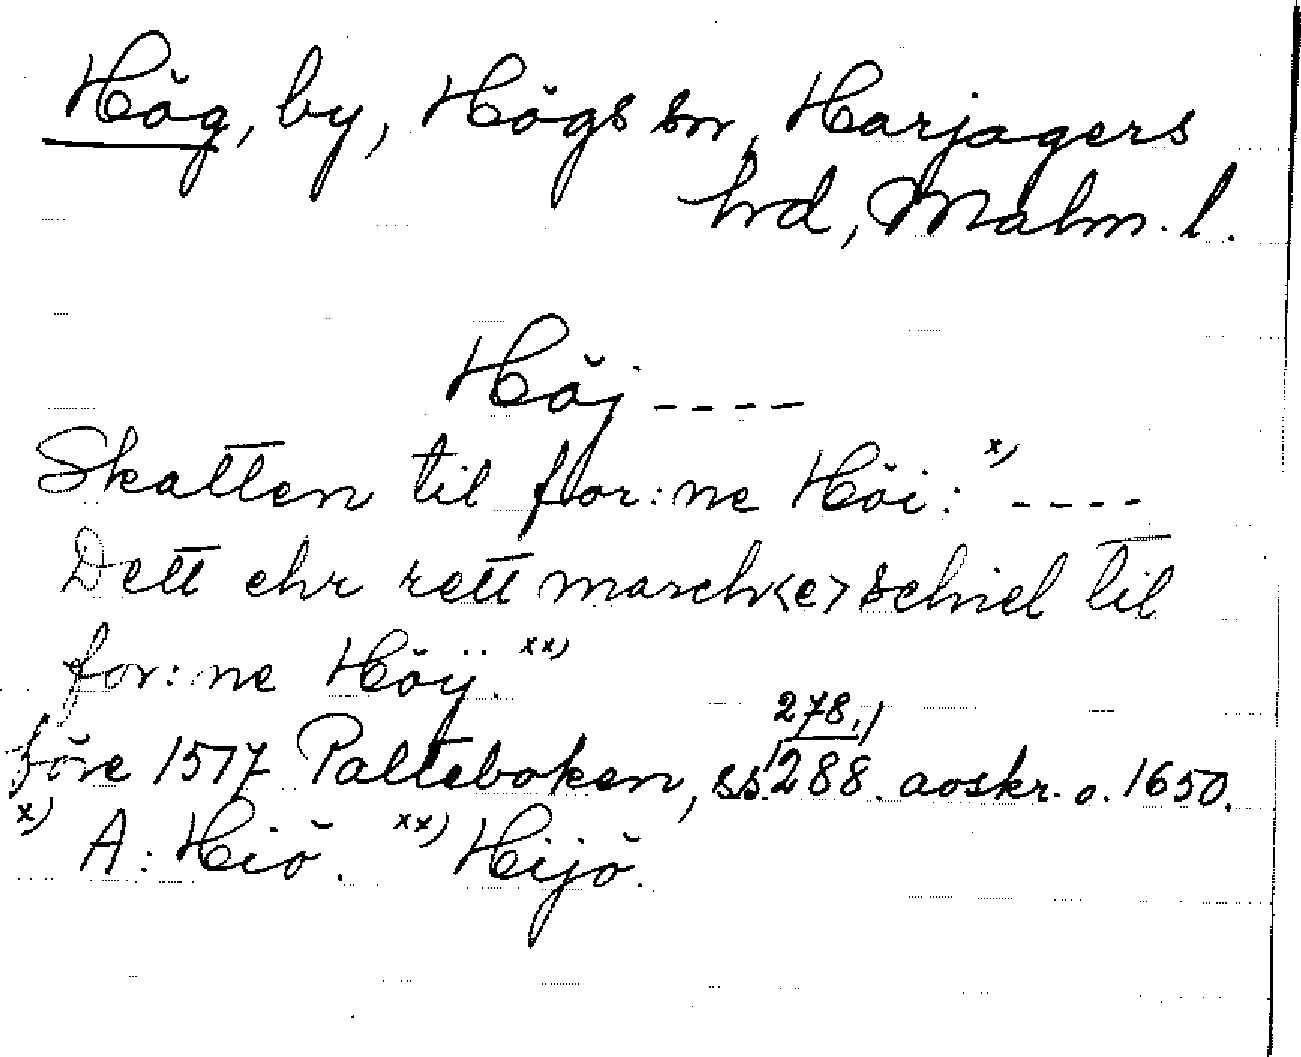 Hög, by, Högs sn, Harjagers
hrd, Malm. l.
Höj ----
Skatten til for:ne Höi: x) ----
Dett ehr rett march<e>schiel til
for:ne Höÿ. xx)
278,
före 1517 Palteboken, ss. 288. aoskr. o. 1650.
x) A: Hiö. xx) Hijö.